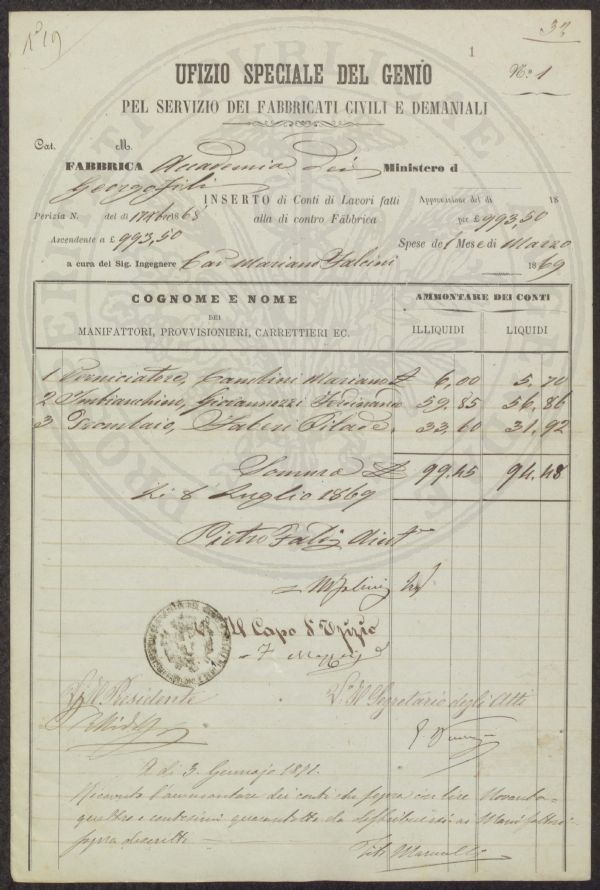 N° 19
32
1
UFIZIO SPECIALE DEL GENIO
N.° 1
PEL SERVIZIO DEI FABBRICATI CIVILI E DEMANIALI
Cat. M.
FABBRICA Accademia dei Ministero d
Georgofili
INSERTO di Conti di Lavori fatti
alla di contro Fabbrica
Approvazione del dì 18
per £ 993,50
Perizia N. del dì 1868
Ascendente a £ 993,50
Spese del Mese di Marzo
1869
a cura del Sig. Ingegnere Cav Mariano Falcini
COGNOME E NOME
DEI
MANIFATTORI, PROVVISIONIERI, CARRETTIERI EC.
AMMONTARE DEI CONTI
ILLIQUIDI LIQUIDI
1 Verniciatore, Cambini Mariano £ 6,00 5,70
2 Imbianchino, Giovannozzi Ferdinando 59.85 56,86
3 Trombaio, Faleri Pilade. 33,60 31,92
Somma £ 99.45 94.48
Li 8 Luglio 1869
Pietro
Il Capo d'Ufizio
V. Il Presidente
V. Il Segretario degli Atti
A dì 3. Gennajo 1871.
Ricevuto l'ammontare dei conti di sopra in lire Novanta
quattro e centesimi quarantotto da distribuirsi ai Manifattori
sopra descritti